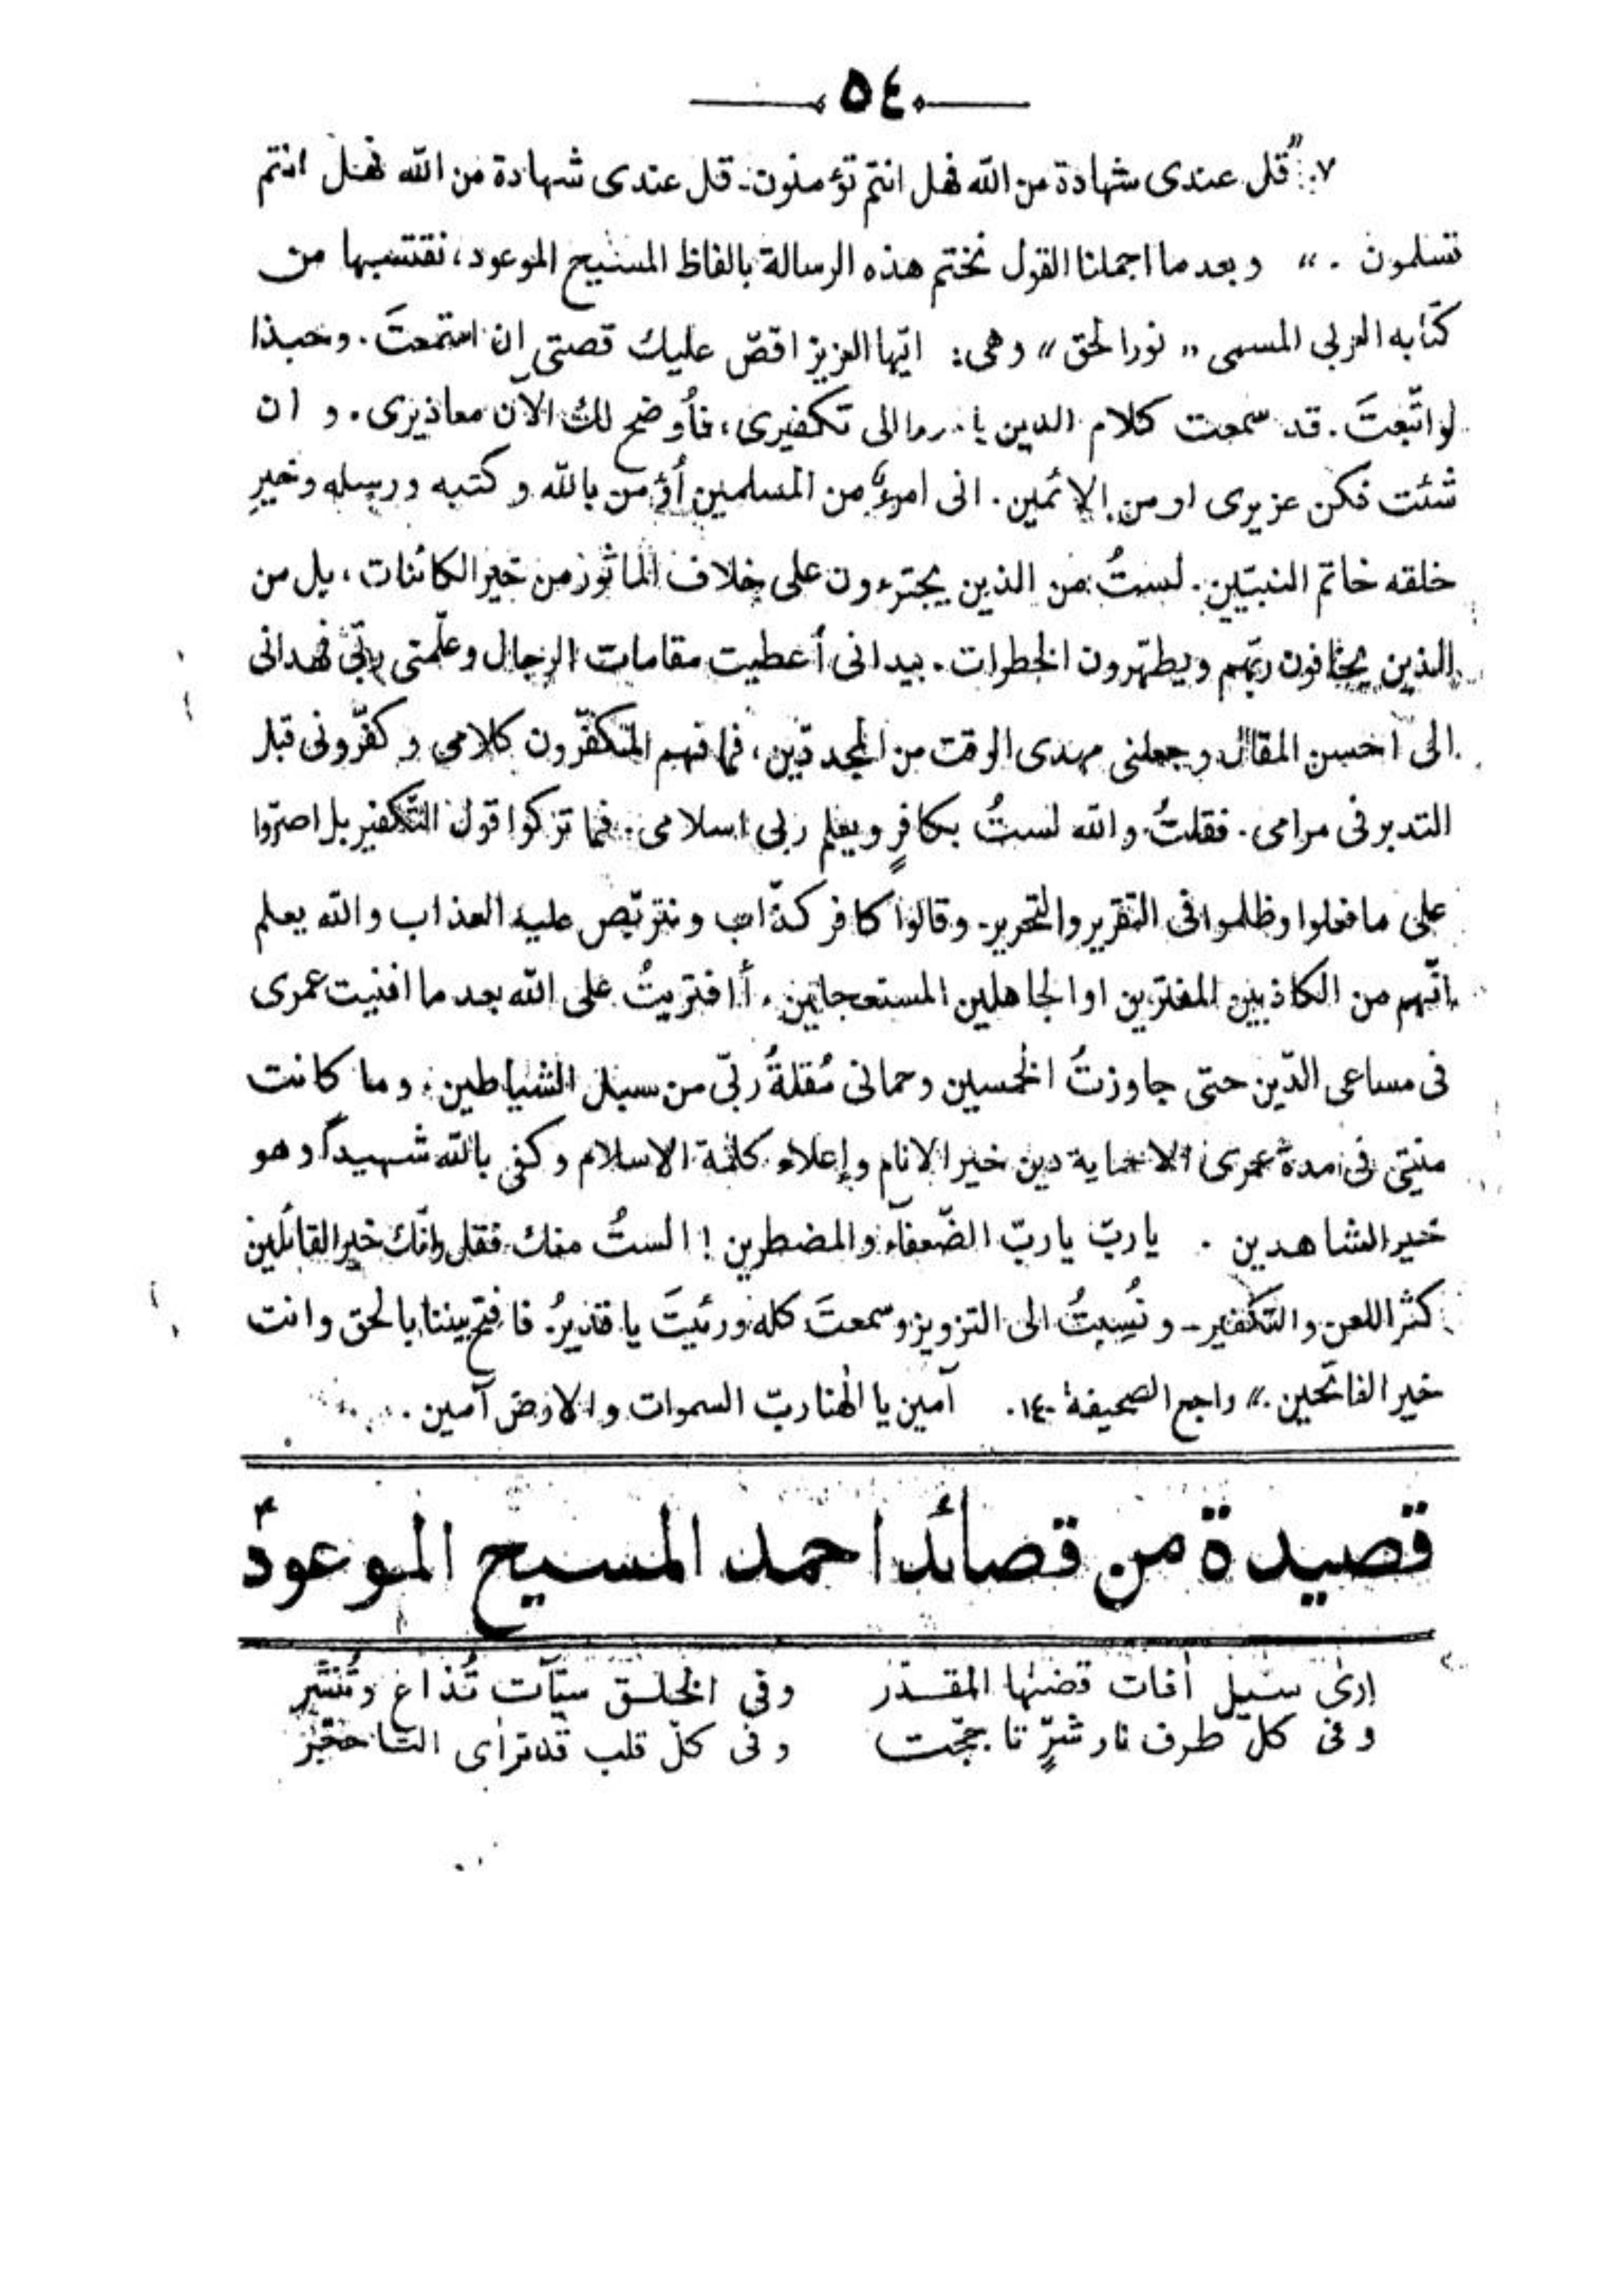 ٥٤
٧. "قل عندى شهادة من الله فهل انتم تؤمنون - قل عندى شهادة من الله فهل انتم
تسلمون ." وبعد ما اجملنا القول نختم هذه الرسالة بالفاظ المسيح الموعود، نقتبسها من
كتابه العربى المسمى "نور الحق" وهى: ايّها العزيز اقصّ عليك قصتى ان استمعتَ. وحبذا
لو اتّبعتَ. قد سمعت كلام الذين الى تكفيرى، فأوضح لك الآن معاذيرى. و ان
شئت فكن عزيرى او من الائمين. انى امرءٌ من المسلمين أؤمن بالله و كتبه ورسله وخيرِ
خلقه خاتم النبيّين. لستُ من الذين يجترءون على خلاف الماثور من خير الكائنات، بل من
الذين يخافون ربّهم ويطهّرون الخطرات. بيد انى أعطيت مقامات الرجال وعلّمنى ربّى فهدانى
الى احسن المقال وجعلنى مهدى الوقت من المجددّين، فما فهم المتكفّرون كلامى وكفّرونى قبل
التدبر فى مرامى. فقلتُ والله لستُ بكافرٍ ويعلم ربى اسلامى. فما تركوا قول التّكفير بل اصرّوا
على ما فعلوا وظلموا فى التقرير والتحرير - وقالوا كافر كذّاب ونتربّص عليه العذاب والله يعلم
انّهم من الكاذبين المفترين او الجاهلين المستعجلين. أافتريتُ على الله بعد ما افنيت عمرى
فى مساعى الدّين حتى جاوزتُ الخمسين وحمانى مُقلةُ ربّى من سبل الشياطين. وما كانت
منيتى فى مدة عمرى الا حماية دين خير الانام وإعلاء كلمة الاسلام وكفى بالله شهيداً وهو
خير الشاهدين . ياربّ ياربّ الضّعفآء والمضطرين! الستُ منك فقل وانّك خير القائلين
كثر اللعن والتكفير - ونُسِبتُ الى التزوير وسمعتَ كله ورئيتَ يا قديرُ. فافتح بيننا بالحق وانت
خير الفاتحين." راجع الصحيفة ١٤٠. آمين يا الٰهنا ربّ السموات والارض آمين.
قصيدة من قصائد احمد المسيح الموعودؑ
ارىٰ سيل افات قضىٰها المقدّر وفى الخلق سيّآت تُذاع وتُنشَر
وفى كلّ طرف نار شرٍّ تاججّت وفى كلّ قلب قد تراٰى